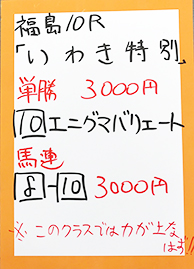 福島10R
「いわき特別」
単勝 3000円
10エニグマバリエート
馬連
8-10 3000円
※このクラスでは力が上な
はず!!